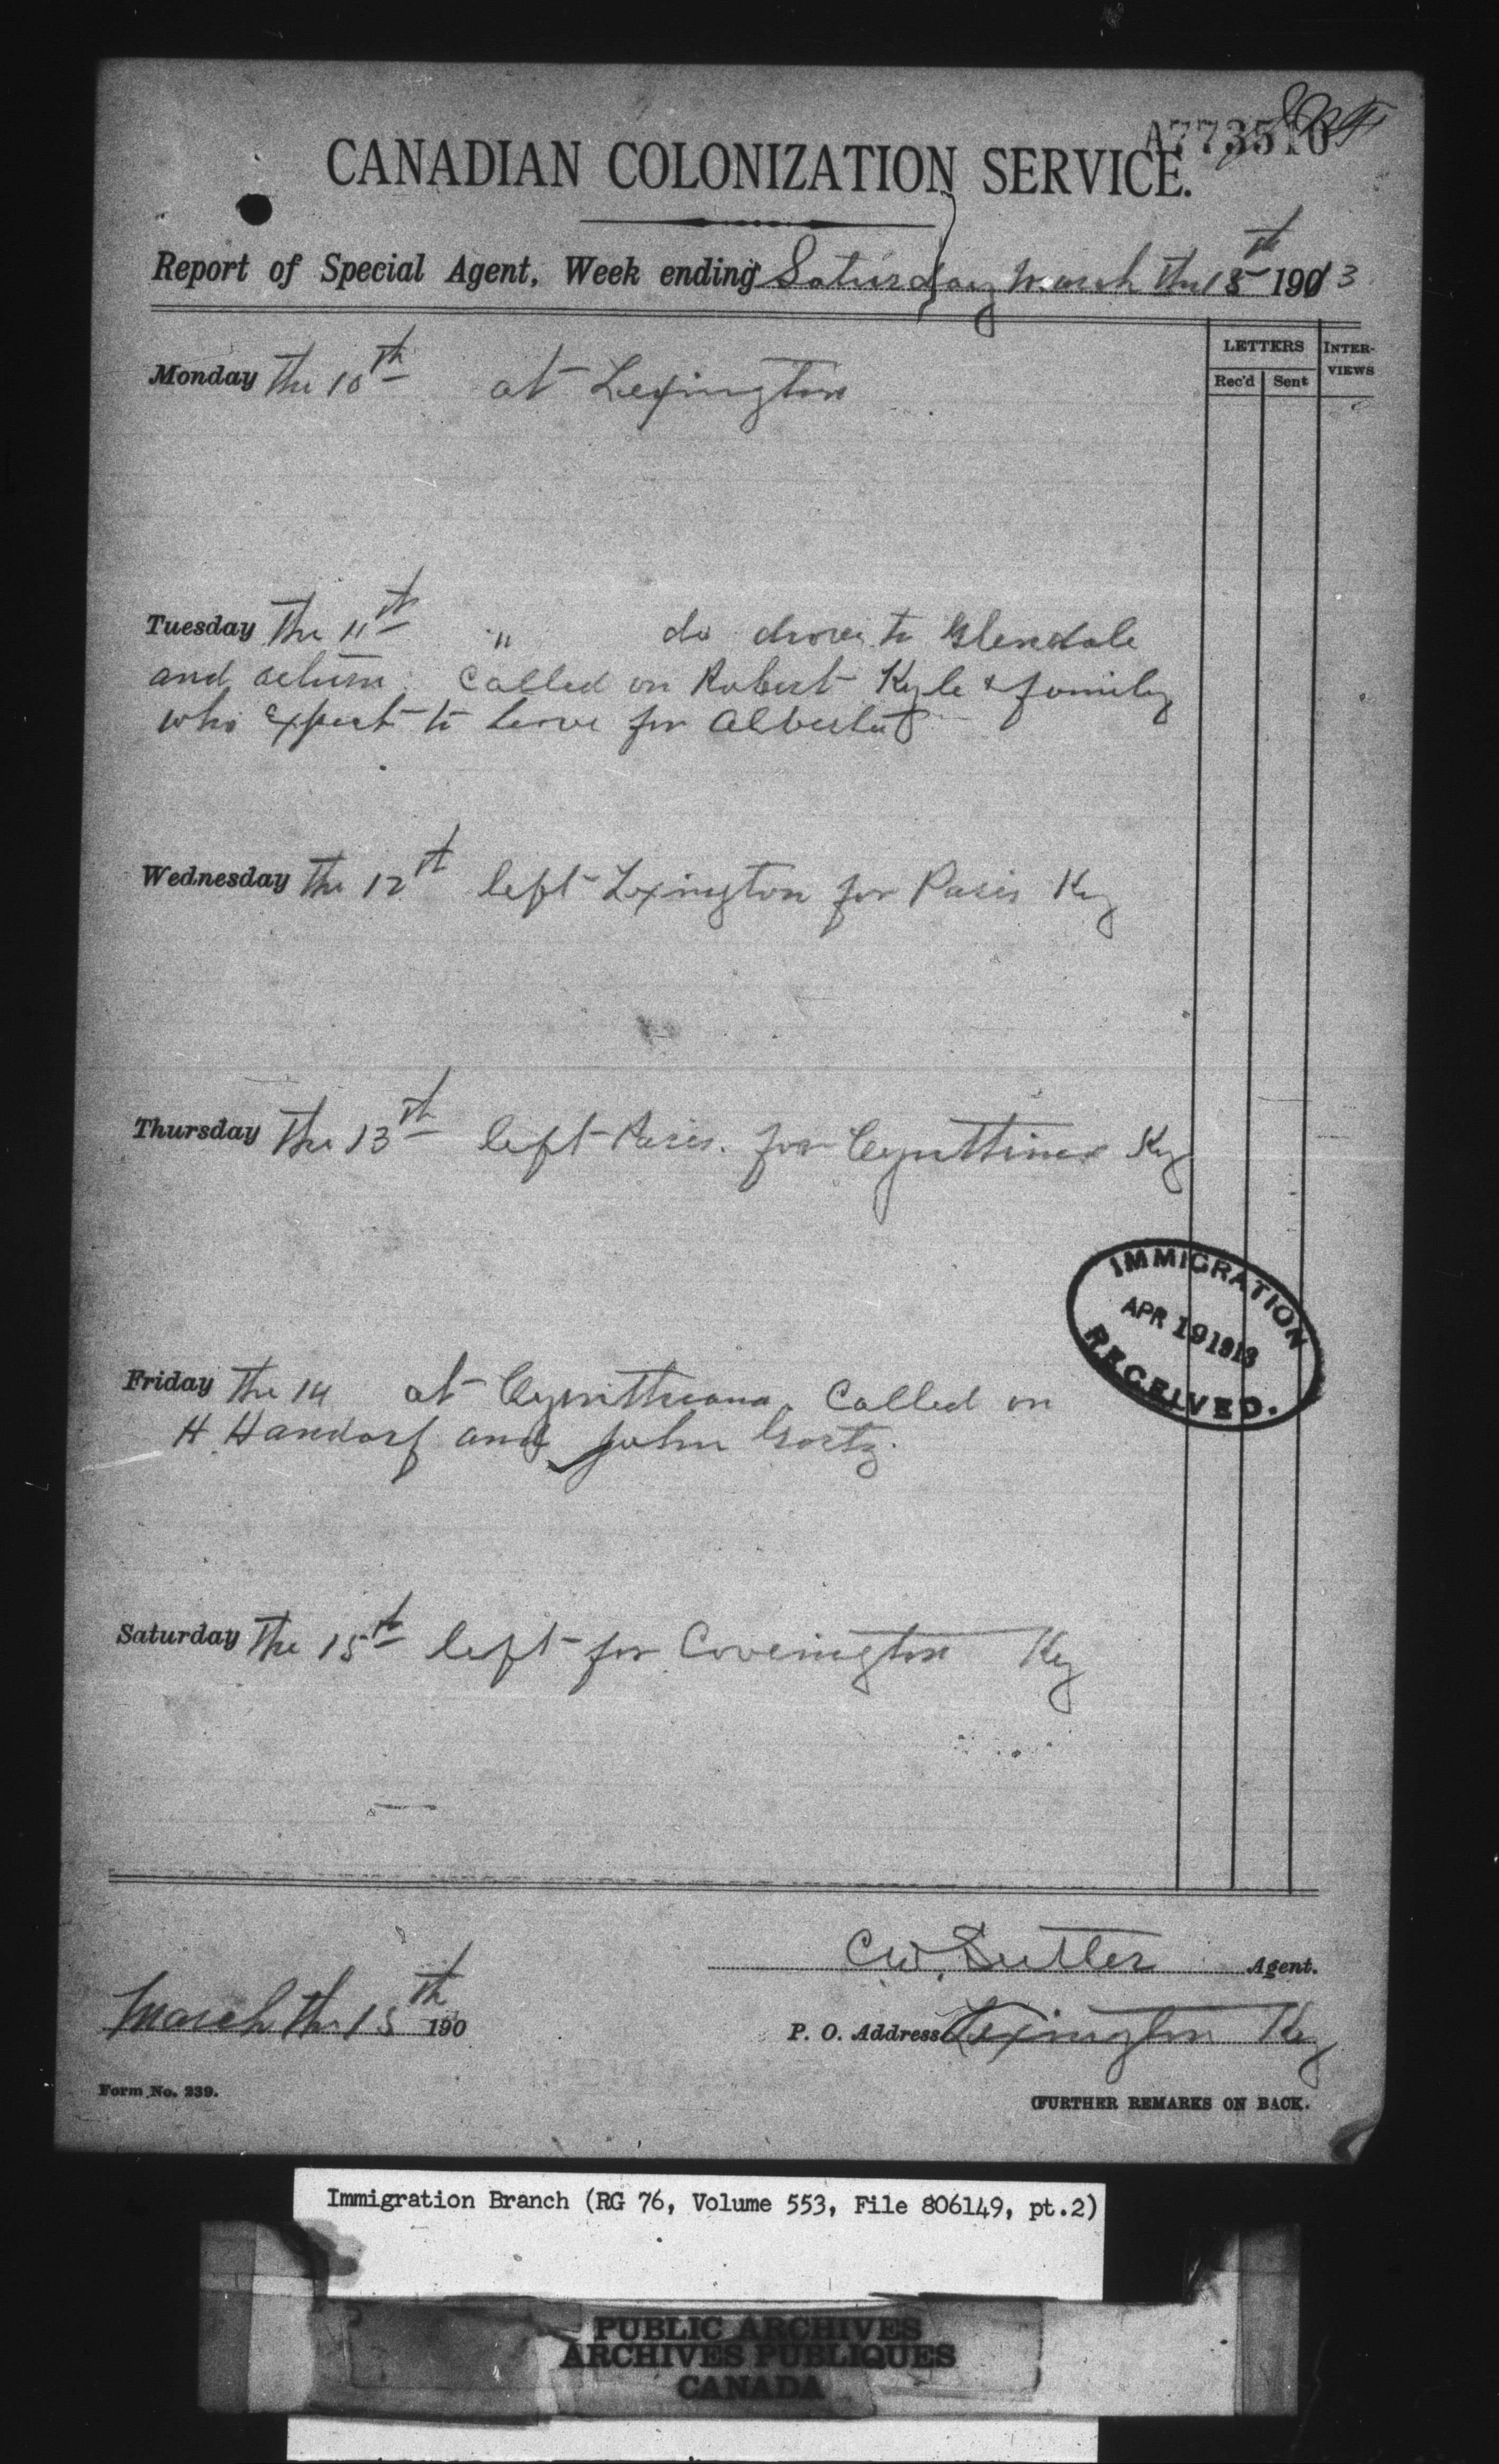 A773510
CANADIAN COLONIZATION SERVICE.
Report of Special Agent, Week ending Saturday March the 15th 1913
LETTERS INTER-VIEWS
Rec'd Sent
Monday the 10th at Lexington
Tuesday the 11th " do drove to Glendale
and return. Called on Robert Kyle & family
who expect to leave for Alberta
Wednesday the 12th left Lexington for Paris Ky
Thursday the 13th left Paris. for Cynthiana Ky
IMMIGRATION
APR 19 1913
RECEIVED.
Friday the 14 at Cynthiana. Called on
H. Handorf and John Goetz.
Saturday the 15th left for Covington Ky
C.W. Sutter Agent.
March the 15th 190
P. O. Address Lexington Ky
Form No. 239.
(FURTHER REMARKS ON BACK.
Immigration Branch (RG 76, Volume 553, File 806149, pt.2)
PUBLIC ARCHIVES
ARCHIVES PUBLIQUES
CANADA